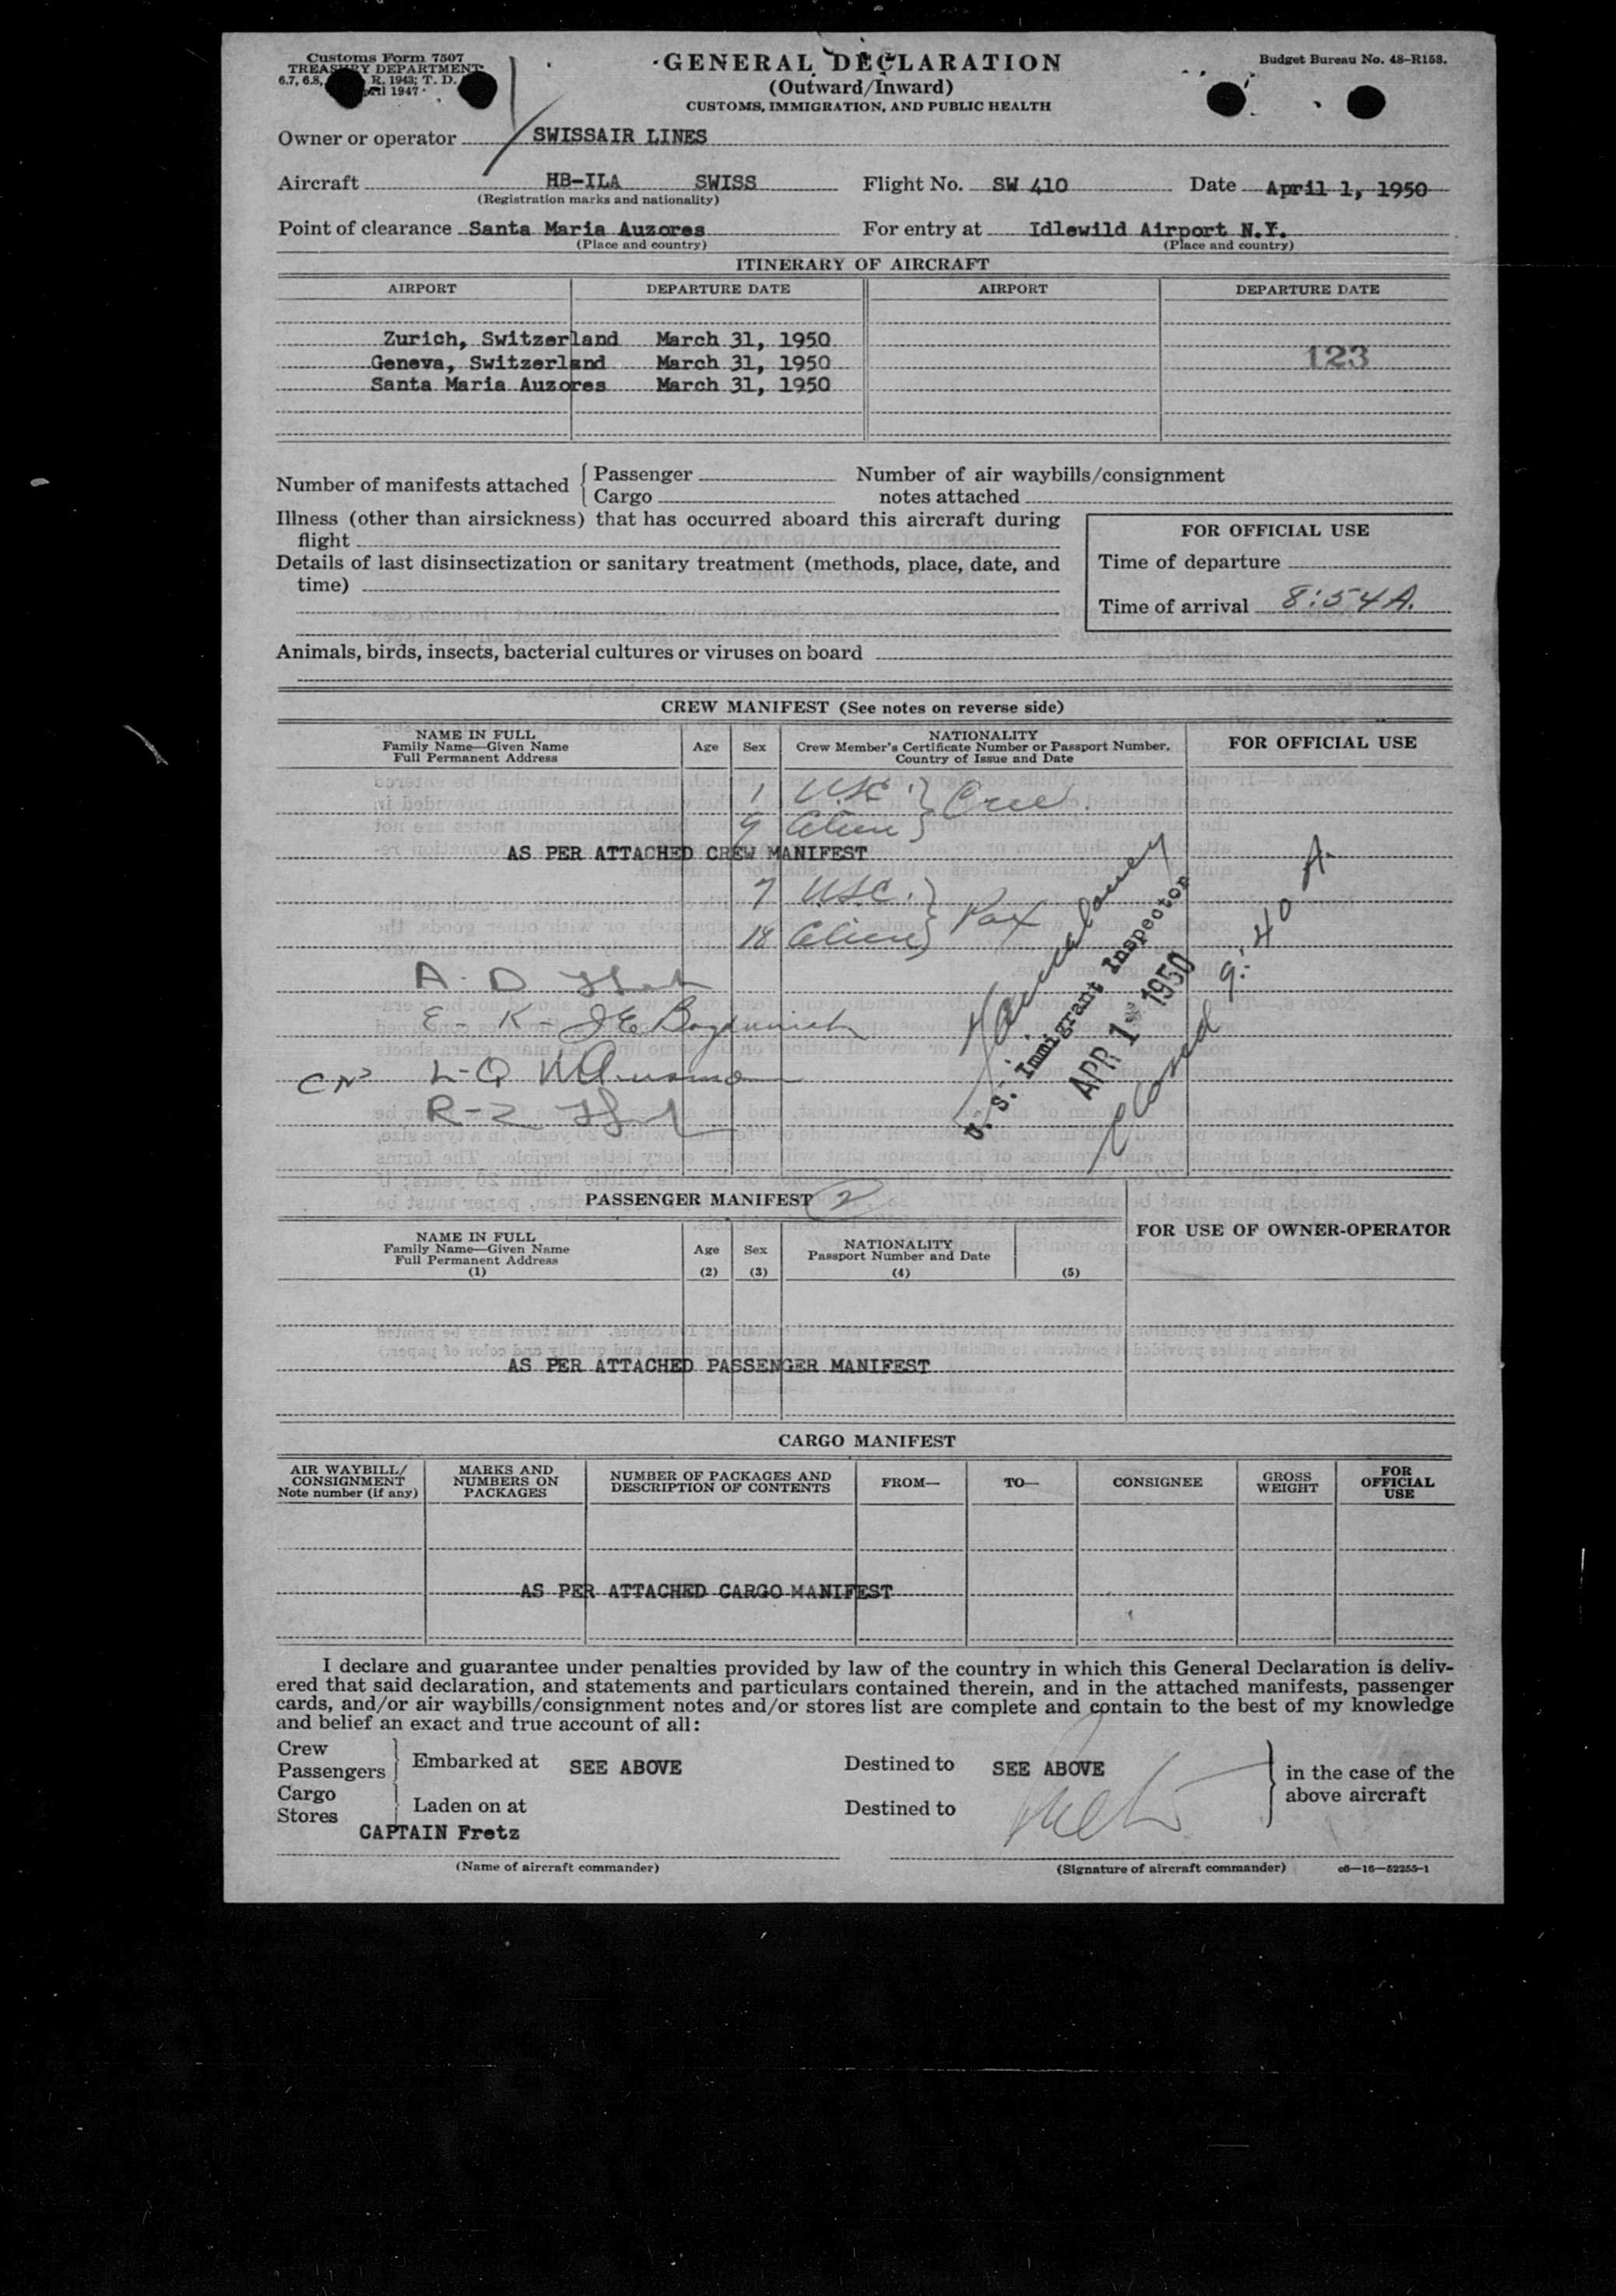 Customs Form 7507
TREASURY DEPARTMENT
6.7, 6.8, R. 1943; T. D.
April 1947
GENERAL DECLARATION
(Outward/Inward)
CUSTOMS, IMMIGRATION, AND PUBLIC HEALTH
Budget Bureau No. 48-R158.
Owner or operator SWISSAIR LINES
Aircraft HB-ILA SWISS Flight No. SW 410 Date April 1, 1950
(Registration marks and nationality)
Point of clearance Santa Maria Auzores For entry at Idlewild Airport N.Y.
(Place and country) (Place and country)
ITINERARY OF AIRCRAFT
AIRPORT DEPARTURE DATE AIRPORT DEPARTURE DATE
Zurich, Switzerland March 31, 1950
123
Geneva, Switzerland March 31, 1950
Santa Maria Auzores March 31, 1950
Number of manifests attached { Passenger
Cargo
Number of air waybills/consignment
notes attached
Illness (other than airsickness) that has occurred aboard this aircraft during
flight
Details of last disinsectization or sanitary treatment (methods, place, date, and
time)
FOR OFFICIAL USE
Time of departure
Time of arrival 8:54 A.
Animals, birds, insects, bacterial cultures or viruses on board
CREW MANIFEST (See notes on reverse side)
NAME IN FULL
Family Name—Given Name
Full Permanent Address
Age
Sex
NATIONALITY
Crew Member's Certificate Number or Passport Number,
Country of Issue and Date
FOR OFFICIAL USE
1 USC } Crew
9 Alien }
AS PER ATTACHED CREW MANIFEST
7 USC }
18 Alien } Pax
A - D
E - K -
L-Q
R-Z
U. S. Immigrant Inspector
APR 1 1950
Cleared 9:40 A
PASSENGER MANIFEST 2
NAME IN FULL
Family Name—Given Name
Full Permanent Address
(1)
Age
(2)
Sex
(3)
NATIONALITY
Passport Number and Date
(4)
(5)
FOR USE OF OWNER-OPERATOR
AS PER ATTACHED PASSENGER MANIFEST
CARGO MANIFEST
AIR WAYBILL/
CONSIGNMENT
Note number (if any)
MARKS AND
NUMBERS ON
PACKAGES
NUMBER OF PACKAGES AND
DESCRIPTION OF CONTENTS
FROM—
TO—
CONSIGNEE
GROSS
WEIGHT
FOR
OFFICIAL
USE
AS PER ATTACHED CARGO MANIFEST
I declare and guarantee under penalties provided by law of the country in which this General Declaration is deliv-
ered that said declaration, and statements and particulars contained therein, and in the attached manifests, passenger
cards, and/or air waybills/consignment notes and/or stores list are complete and contain to the best of my knowledge
and belief an exact and true account of all:
Crew
Passengers } Embarked at SEE ABOVE Destined to SEE ABOVE
Cargo
Stores } Laden on at Destined to
in the case of the
above aircraft
CAPTAIN Fretz
(Name of aircraft commander) (Signature of aircraft commander) c6—16—52255-1